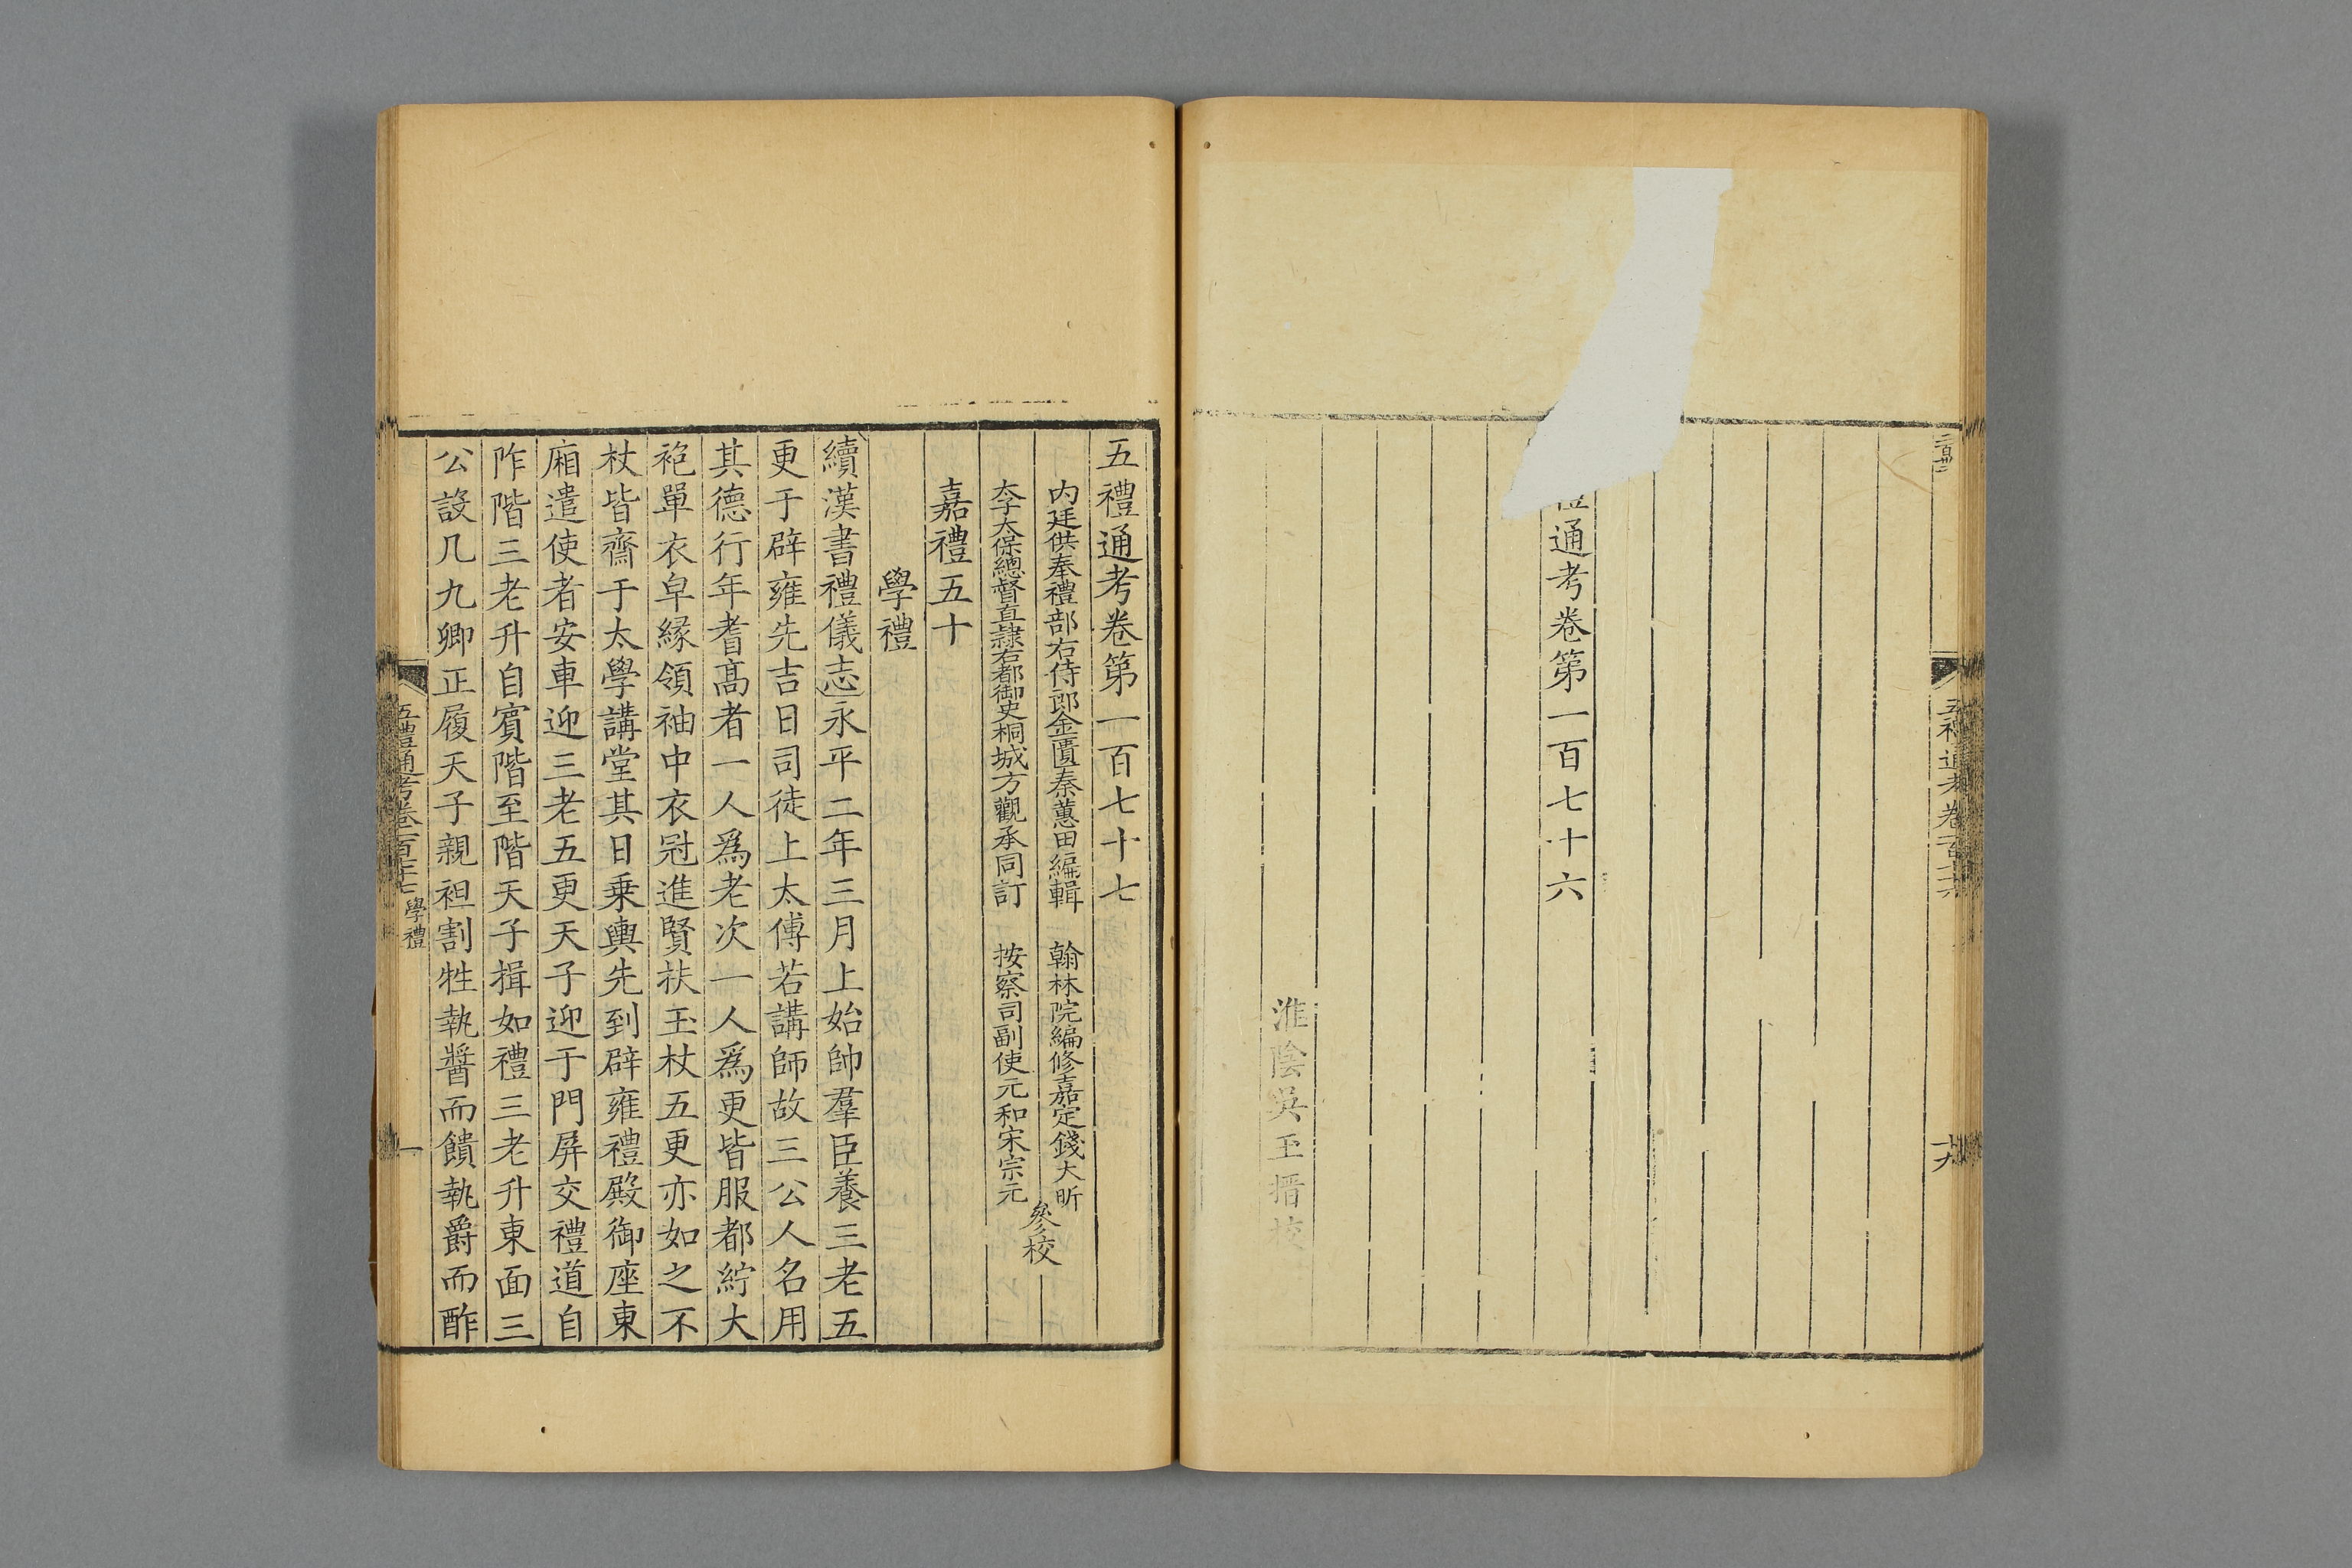 禮通考卷第一百七十六
淮陰吳玉搢校
十九
五禮通考卷第一百七十七
内廷供奉禮部右侍郎金匱秦蕙田編輯　翰林院編修嘉定錢大昕
太子太保總督直隷右都御史桐城方觀承同訂　按察司副使元和宋宗元
參校
嘉禮五十
學禮
續漢書禮儀志永平二年三月上始帥羣臣養三老五
更于辟雍先吉日司徒上太傅若講師故三公人名用
其德行年耆高者一人爲老次一人爲更皆服都紵大
袍單衣皁緣領袖中衣冠進賢扶玉杖五更亦如之不
杖皆齋于太學講堂其日乗輿先到辟雍禮殿御座東
廂遣使者安車迎三老五更天子迎于門屏交禮道自
阼階三老升自賓階至階天子揖如禮三老升東面三
公設几九卿正履天子親袒割牲執醬而饋執爵而酳
五禮通考卷一百七十七　學禮
一